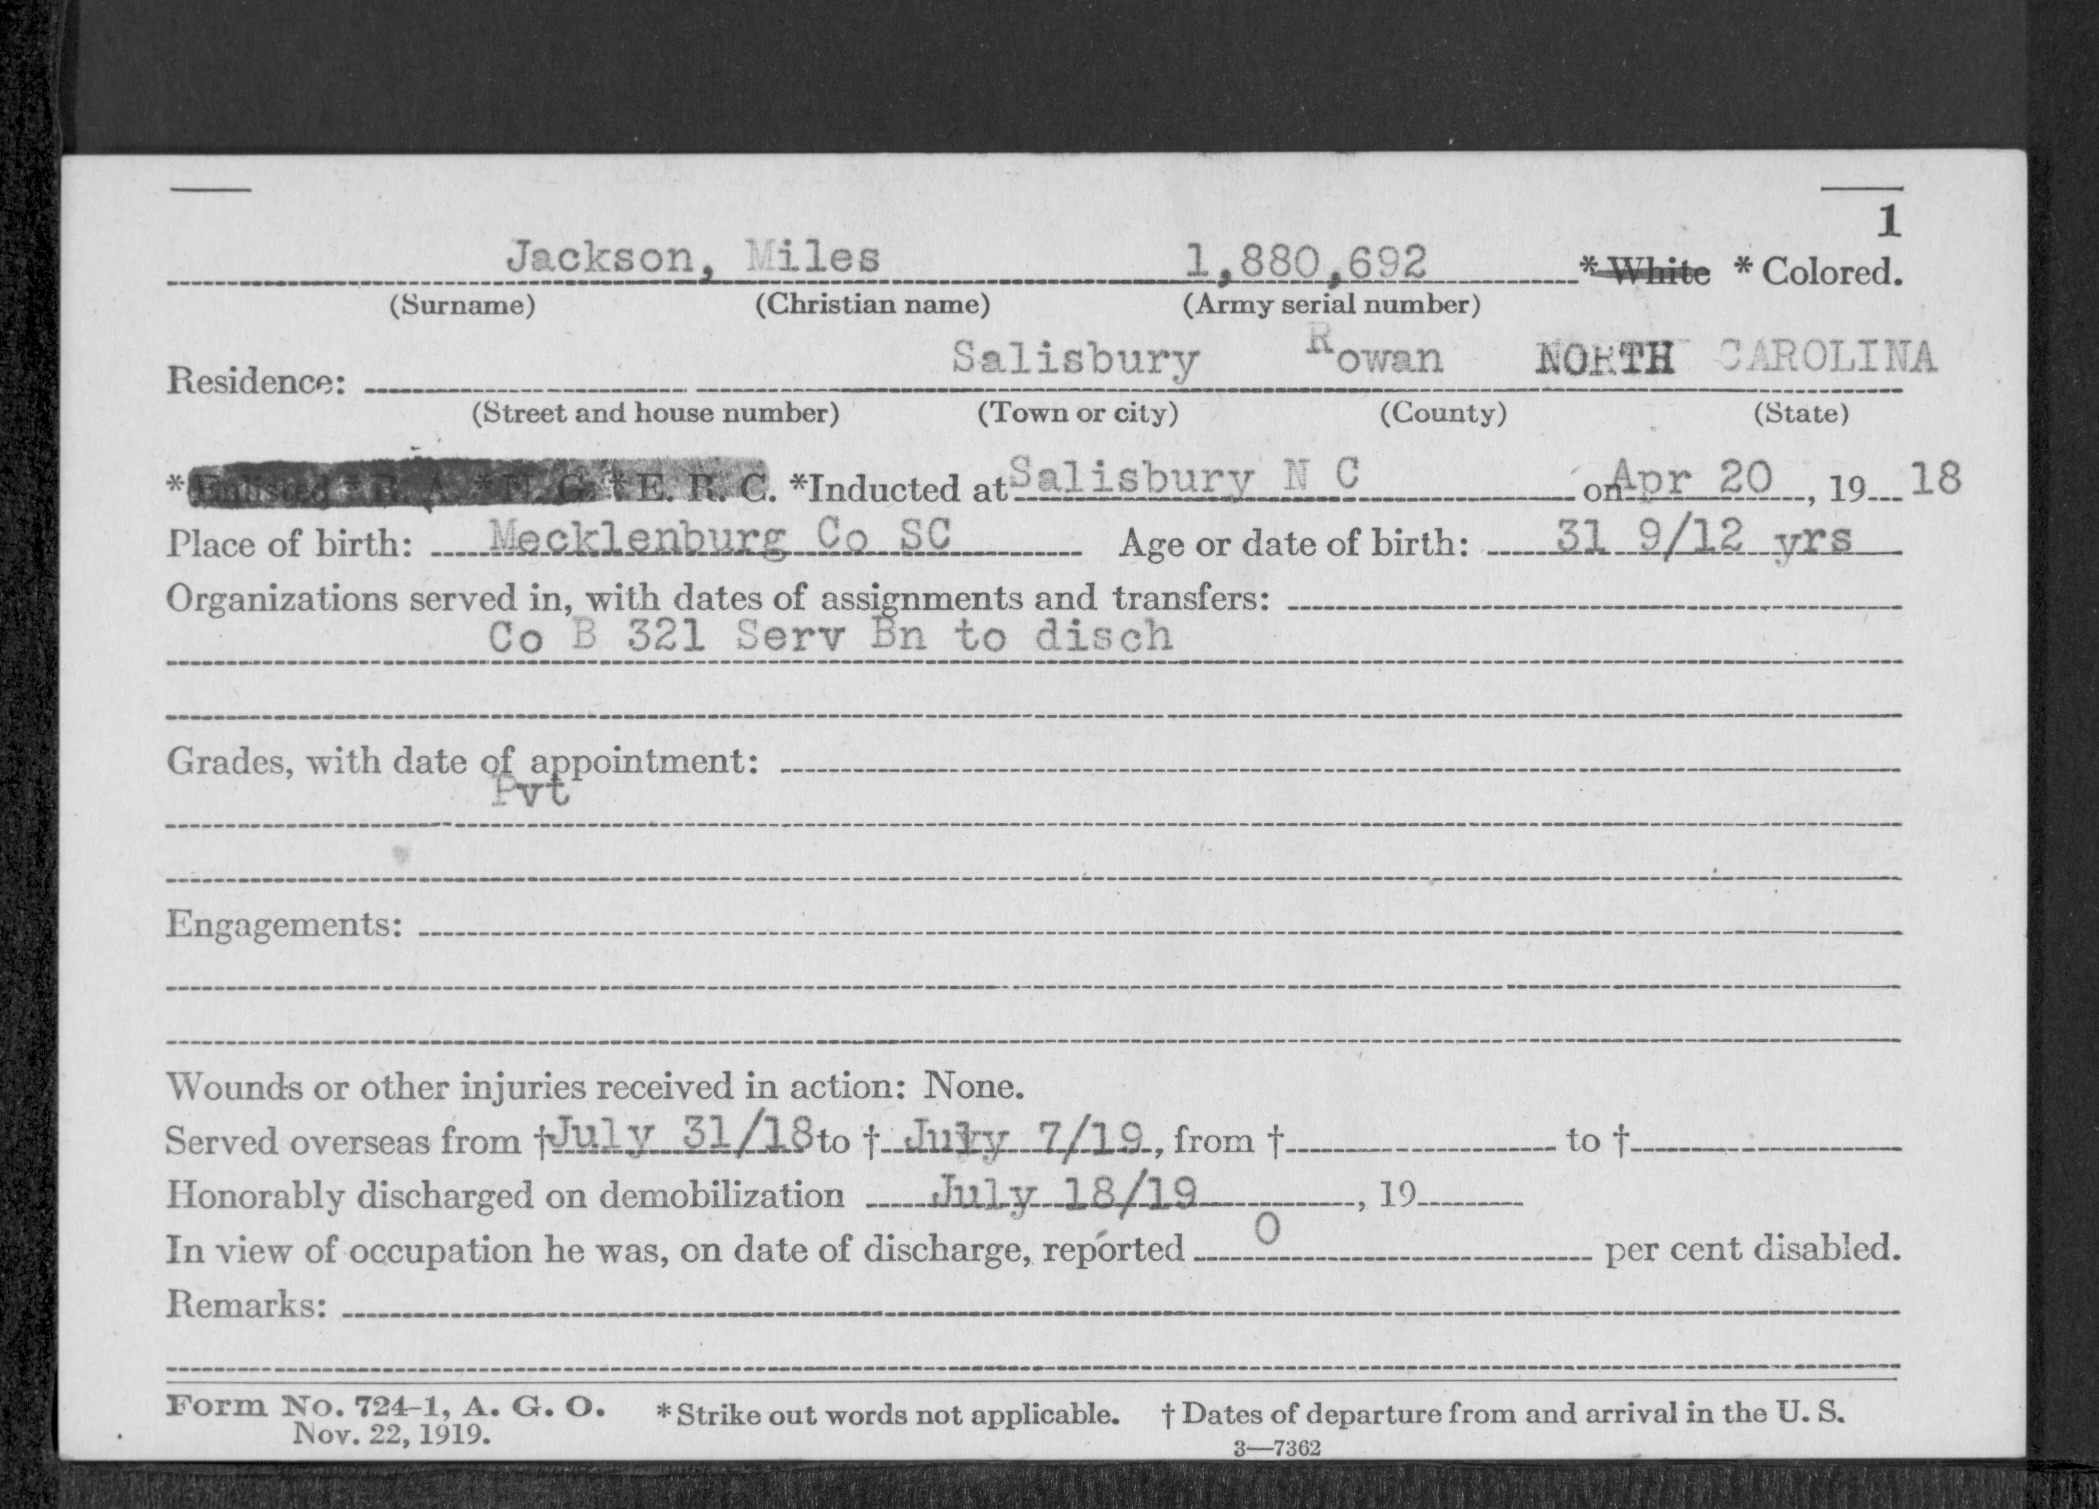 1
Jackson, Miles 1,880,692 *White *Colored.
(Surname) (Christian name) (Army serial number)
Residence: Salisbury Rowan NORTH CAROLINA
(Street and house number) (Town or city) (County) (State)
*Enlisted *R. A. *N. G. *E. R. C. *Inducted at Salisbury N C on Apr 20, 19 18
Place of birth: Mecklenburg Co SC Age or date of birth: 31 9/12 yrs
Organizations served in, with dates of assignments and transfers:
Co B 321 Serv Bn to disch
Grades, with date of appointment:
Pvt
Engagements:
Wounds or other injuries received in action: None.
Served overseas from † July 31/18 to † July 7/19, from † to †
Honorably discharged on demobilization July 18/19, 19
In view of occupation he was, on date of discharge, reported 0 per cent disabled.
Remarks:
Form No. 724-1, A. G. O. *Strike out words not applicable. † Dates of departure from and arrival in the U. S.
Nov. 22, 1919. 3—7362